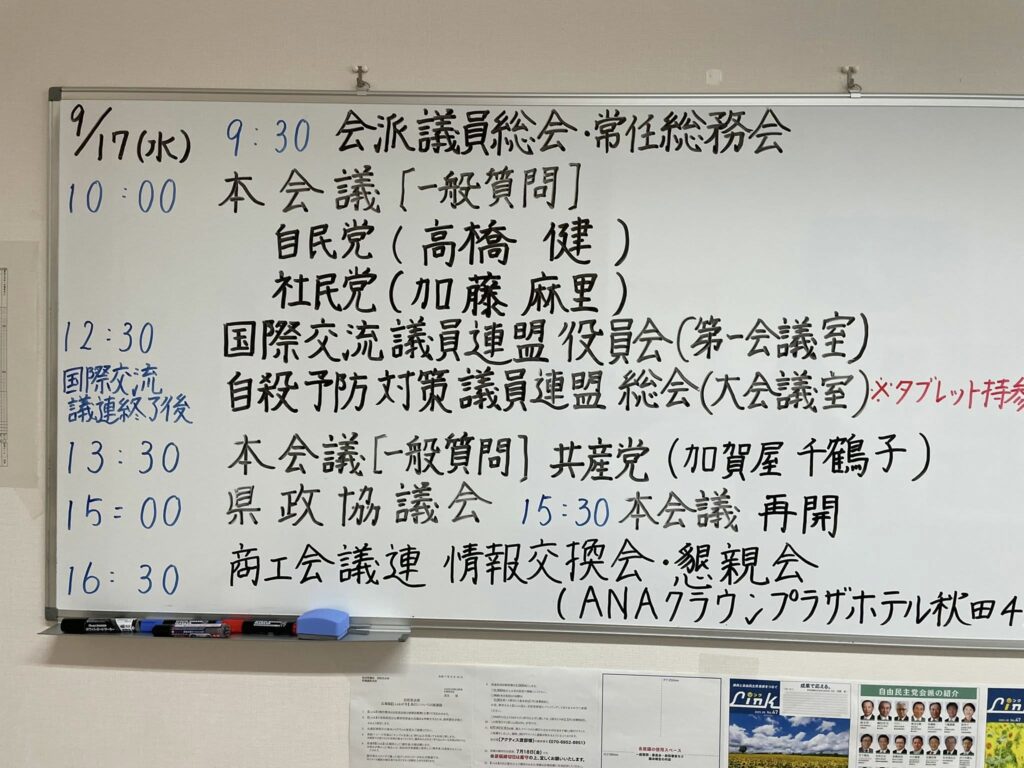 9/17(水) 9:30 会派議員総会・常任総務会
10:00 本会議[一般質問]
自民党(高橋 健)
社民党(加藤 麻里)
12:30 国際交流議員連盟 役員会(第一会議室)
国際交流
議連終了後
自殺予防対策議員連盟 総会(大会議室)※タブレット持参
13:30 本会議[一般質問] 共産党(加賀屋 千鶴子)
15:00 県政協議会 15:30 本会議 再開
16:30 商工会議連 情報交換会・懇親会
(ANAクラウンプラザホテル秋田4
7月18日(金)
各県議の使用スペース
県民と自民党県議団をつなぐ
Link
No.47
成果で応える。
自由民主党会派の紹介
Link